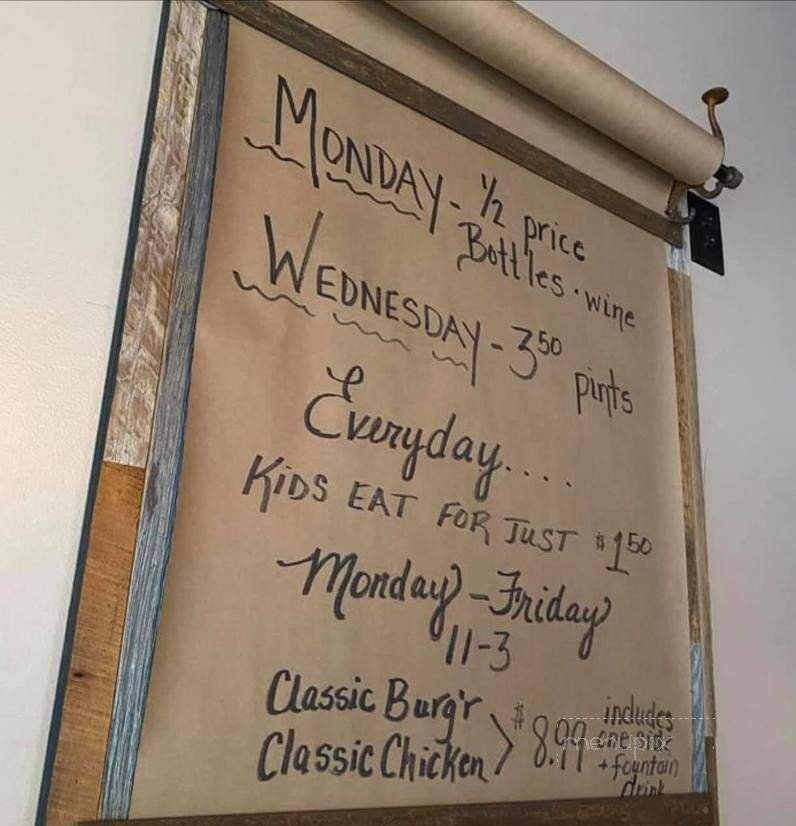 MONDAY - 1/2 price
Bottles · wine
WEDNESDAY - 3 50 pints
Everyday....
KIDS EAT FOR JUST $1 50
Monday - Friday
11-3
Classic Burg'r
Classic Chicken > $8.99
includes
one side
+ fountain
drink
menupix